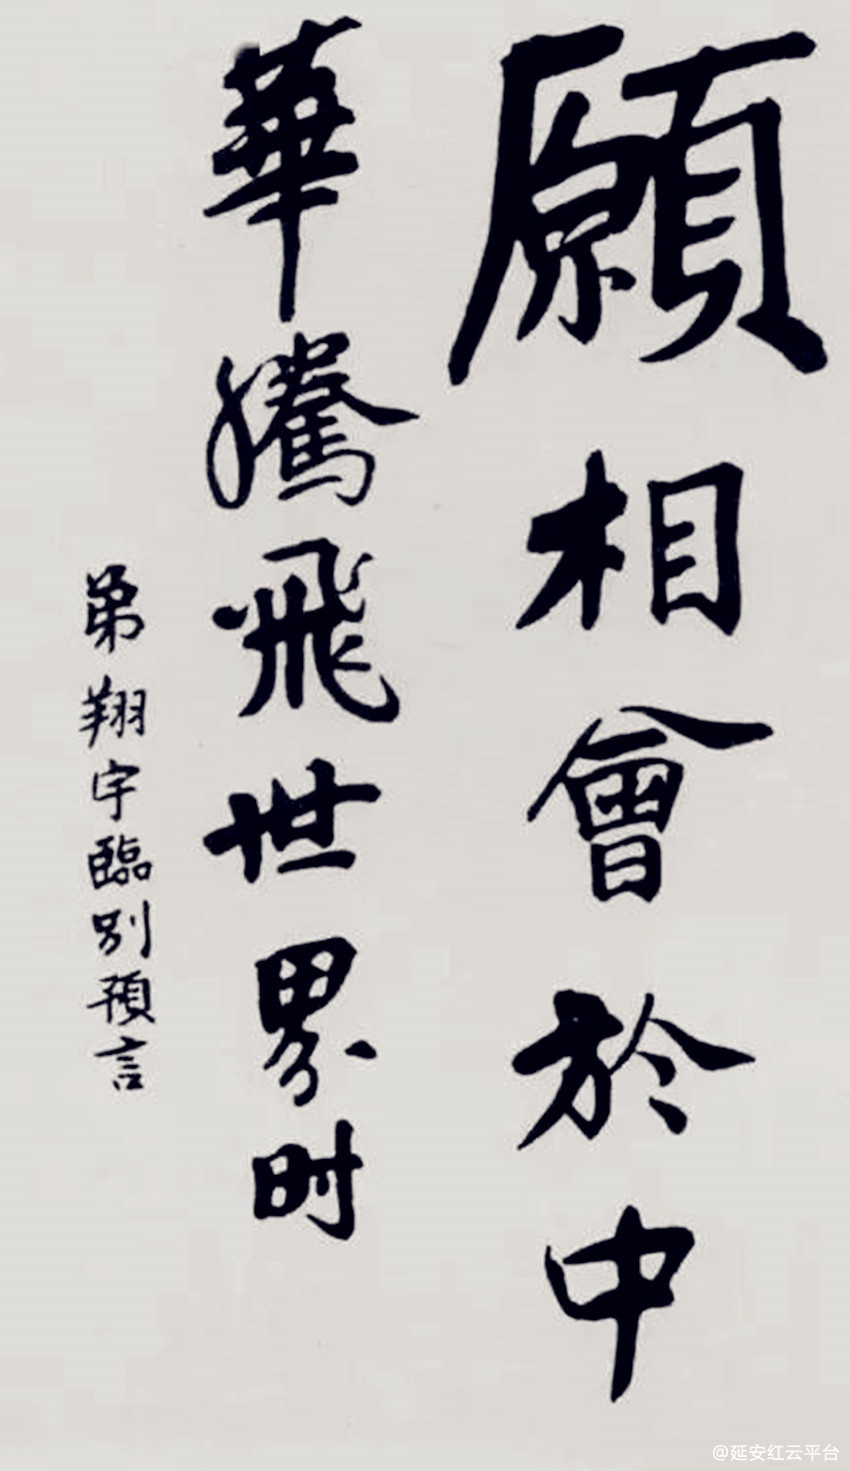 願相會於中
華騰飛世界时
弟翔宇臨别預言
@延安红云平台